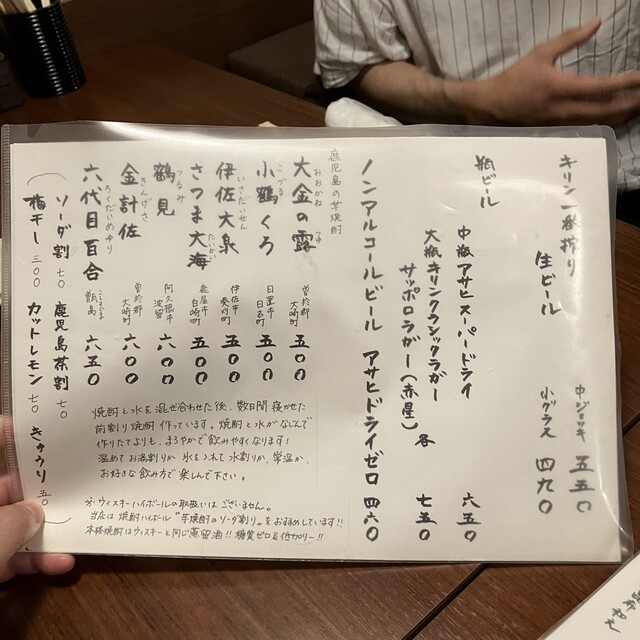 キリン一番搾り
生ビール
中ジョッキ 五五〇
小グラス 四九〇
瓶ビール
中瓶 アサヒスーパードライ 六五〇
大瓶 キリンクラシックラガー
サッポロラガー(赤星) 各 七五〇
ノンアルコールビール アサヒドライゼロ 四六〇
鹿児島の芋焼酎
大金の露 おおがね つゆ 曽於郡 大崎町 五〇〇
小鶴くろ こづる 日置市 日吉町 五〇〇
伊佐大泉 いさだいせん 伊佐市 菱刈町 五〇〇
さつま大海 たいかい 鹿屋市 白崎町 五〇〇
鶴見 つるみ 阿久根市 波留 六〇〇
金計佐 きんげさ 曽於郡 大崎町 六〇〇
六代目百合 ろくだいめゆり 甑島 こしきじま 六五〇
ソーダ割 七〇 鹿児島茶割 七〇
梅干し 三〇〇 カットレモン 七〇 きゅうり 五〇
焼酎と水を混ぜ合わせた後、数日間寝かせた
前割り焼酎作っています。焼酎と水がなじんで
作りたてよりも、まろやかで飲みやすくなります!
温めてお湯割りか 氷を入れて水割りか、常温か、
お好きな飲み方で楽しんで下さい。
※ウィスキーハイボールの取扱いはございません。
当店は焼酎ハイボール"芋焼酎のソーダ割り"をおすすめしています!!
本格焼酎はウィスキーと同じ蒸留酒!!糖質ゼロ&低カロリー!!